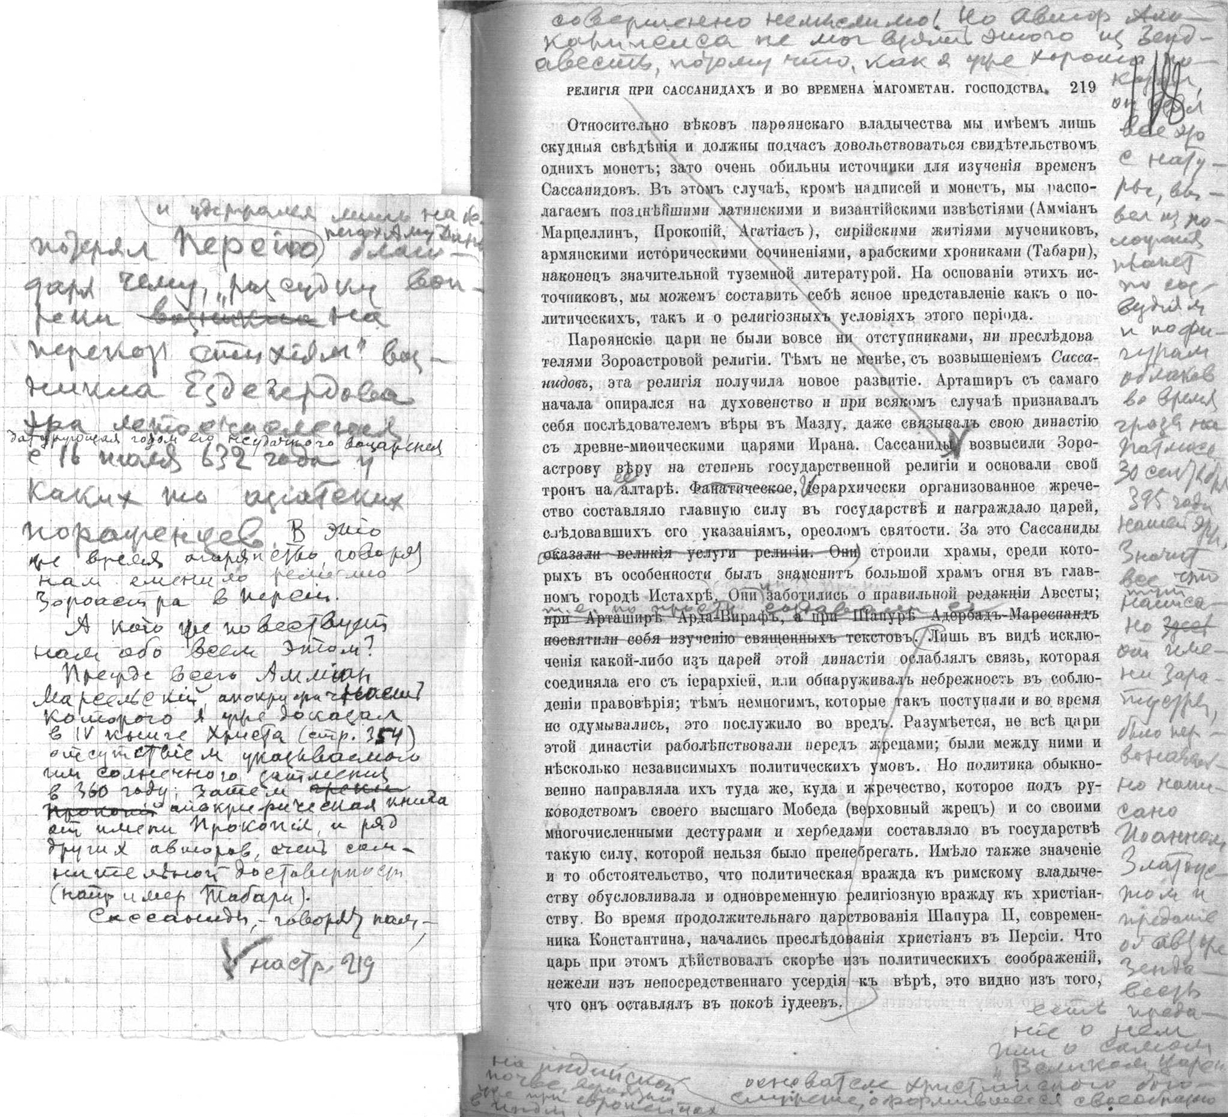 и удержался лишь на бе-
регах Аму Дарьи
потерял Персію благо-
даря чему, "разсудку воп-
реки на
перекор стихіям" воз-
никла Ездегердова
эра летосчисления
датирующая годом его неудачного воцарения
с 16 июля 632 года у
каких то азіатских
пораженцев. В это
же время агарянство, говорят
нам сменило религию
Зороастра в Персии.
А кто же повествует
нам обо всем этом?
Прежде всего Амміан
Марсельскій апокрифичность
которого я уже доказал
в IV книге Христа (стр. 354)
отсутствіем указываемого
им солнечного затмения
в 360 году; затем
Прокопій апокрифическая книга
от имени Прокопія, и ряд
других авторов, очень сом-
нительной достоверности
(например Табари).
Сассаниды, - говорят нам, -
на стр. 219
совершенно немыслимо! Но автор Апо-
калипсиса не мог взять этого из Зенд-
авесты, потому что, как я уже хорошо по-
казал,
он взял
все это
с нату-
ры, вы-
вел из по-
ложения
планет
по соз-
вездіям
и по фи-
гурам
облаков
во время
грозы на
Патмосе
30 сентября
395 года
нашей эры,
Значит
все что
написа-
но
от име-
ни Заро-
тустры,
было пер-
воначаль-
но напи-
сано
Иоанном
Златоус-
том и
преданіе
об авторе
Зенда-
весты
есть преда-
ніе о нем
или о самом
"Великом царе"
РЕЛИГІЯ ПРИ САССАНИДАХЪ И ВО ВРЕМЕНА МАГОМЕТАН. ГОСПОДСТВА. 219
Относительно вѣковъ парѳянскаго владычества мы имѣемъ лишь
скудныя свѣдѣнія и должны подчасъ довольствоваться свидѣтельствомъ
однихъ монетъ; зато очень обильны источники для изученія временъ
Сассанидовъ. Въ этомъ случаѣ, кромѣ надписей и монетъ, мы распо-
лагаемъ позднѣйшими латинскими и византійскими извѣстіями (Амміанъ
Марцеллинъ, Прокопій, Агатіасъ), сирійскими житіями мучениковъ,
армянскими историческими сочиненіями, арабскими хрониками (Табари),
наконецъ значительной туземной литературой. На основаніи этихъ ис-
точниковъ, мы можемъ составить себѣ ясное представленіе какъ о по-
литическихъ, такъ и о религіозныхъ условіяхъ этого періода.
Парѳянскіе цари не были вовсе ни отступниками, ни преслѣдова
телями Зороастровой религіи. Тѣмъ не менѣе, съ возвышеніемъ Сасса-
нидовъ, эта религія получила новое развитіе. Арташиръ съ самаго
начала опирался на духовенство и при всякомъ случаѣ признавалъ
себя послѣдователемъ вѣры въ Мазду, даже связывалъ свою династію
съ древне-миѳическими царями Ирана. Сассаниды возвысили Зоро-
астрову вѣру на степень государственной религіи и основали свой
тронъ на алтарѣ. Фанатическое, іерархически организованное жрече-
ство составляло главную силу въ государствѣ и награждало царей,
слѣдовавшихъ его указаніямъ, ореоломъ святости. За это Сассаниды
оказали великія услуги религіи. Они строили храмы, среди кото-
рыхъ въ особенности былъ знаменитъ большой храмъ огня въ глав-
номъ городѣ Истахрѣ, Они заботились о правильной редакціи Авесты;
при Арташирѣ Арда-Вирафъ, а при Шапурѣ Адербадъ-Мареспандъ
посвятили себя изученію священныхъ текстовъ. Лишь въ видѣ исклю-
ченія какой-либо изъ царей этой династіи ослаблялъ связь, которая
соединяла его съ іерархіей, или обнаруживалъ небрежность въ соблю-
деніи правовѣрія; тѣмъ немногимъ, которые такъ поступали и во время
не одумывались, это послужило во вредъ. Разумѣется, не всѣ цари
этой династіи раболѣпствовали передъ жрецами; были между ними и
нѣсколько независимыхъ политическихъ умовъ. Но политика обыкно-
венно направляла ихъ туда же, куда и жречество, которое подъ ру-
ководствомъ своего высшаго Мобеда (верховный жрецъ) и со своими
многочисленными дестурами и хербедами составляло въ государствѣ
такую силу, которой нельзя было пренебрегать. Имѣло также значеніе
и то обстоятельство, что политическая вражда къ римскому владыче-
ству обусловливала и одновременную религіозную вражду къ христіан-
ству. Во время продолжительнаго царствованія Шапура II, современ-
ника Константина, начались преслѣдованія христіанъ въ Персіи. Что
царь при этомъ дѣйствовалъ скорѣе изъ политическихъ соображеній,
нежели изъ непосредственнаго усердія къ вѣрѣ, это видно изъ того,
что онъ оставлялъ въ покоѣ іудеевъ.
основателе христианского бого-
служения, оформившееся своеобразно
на индийской
почве,